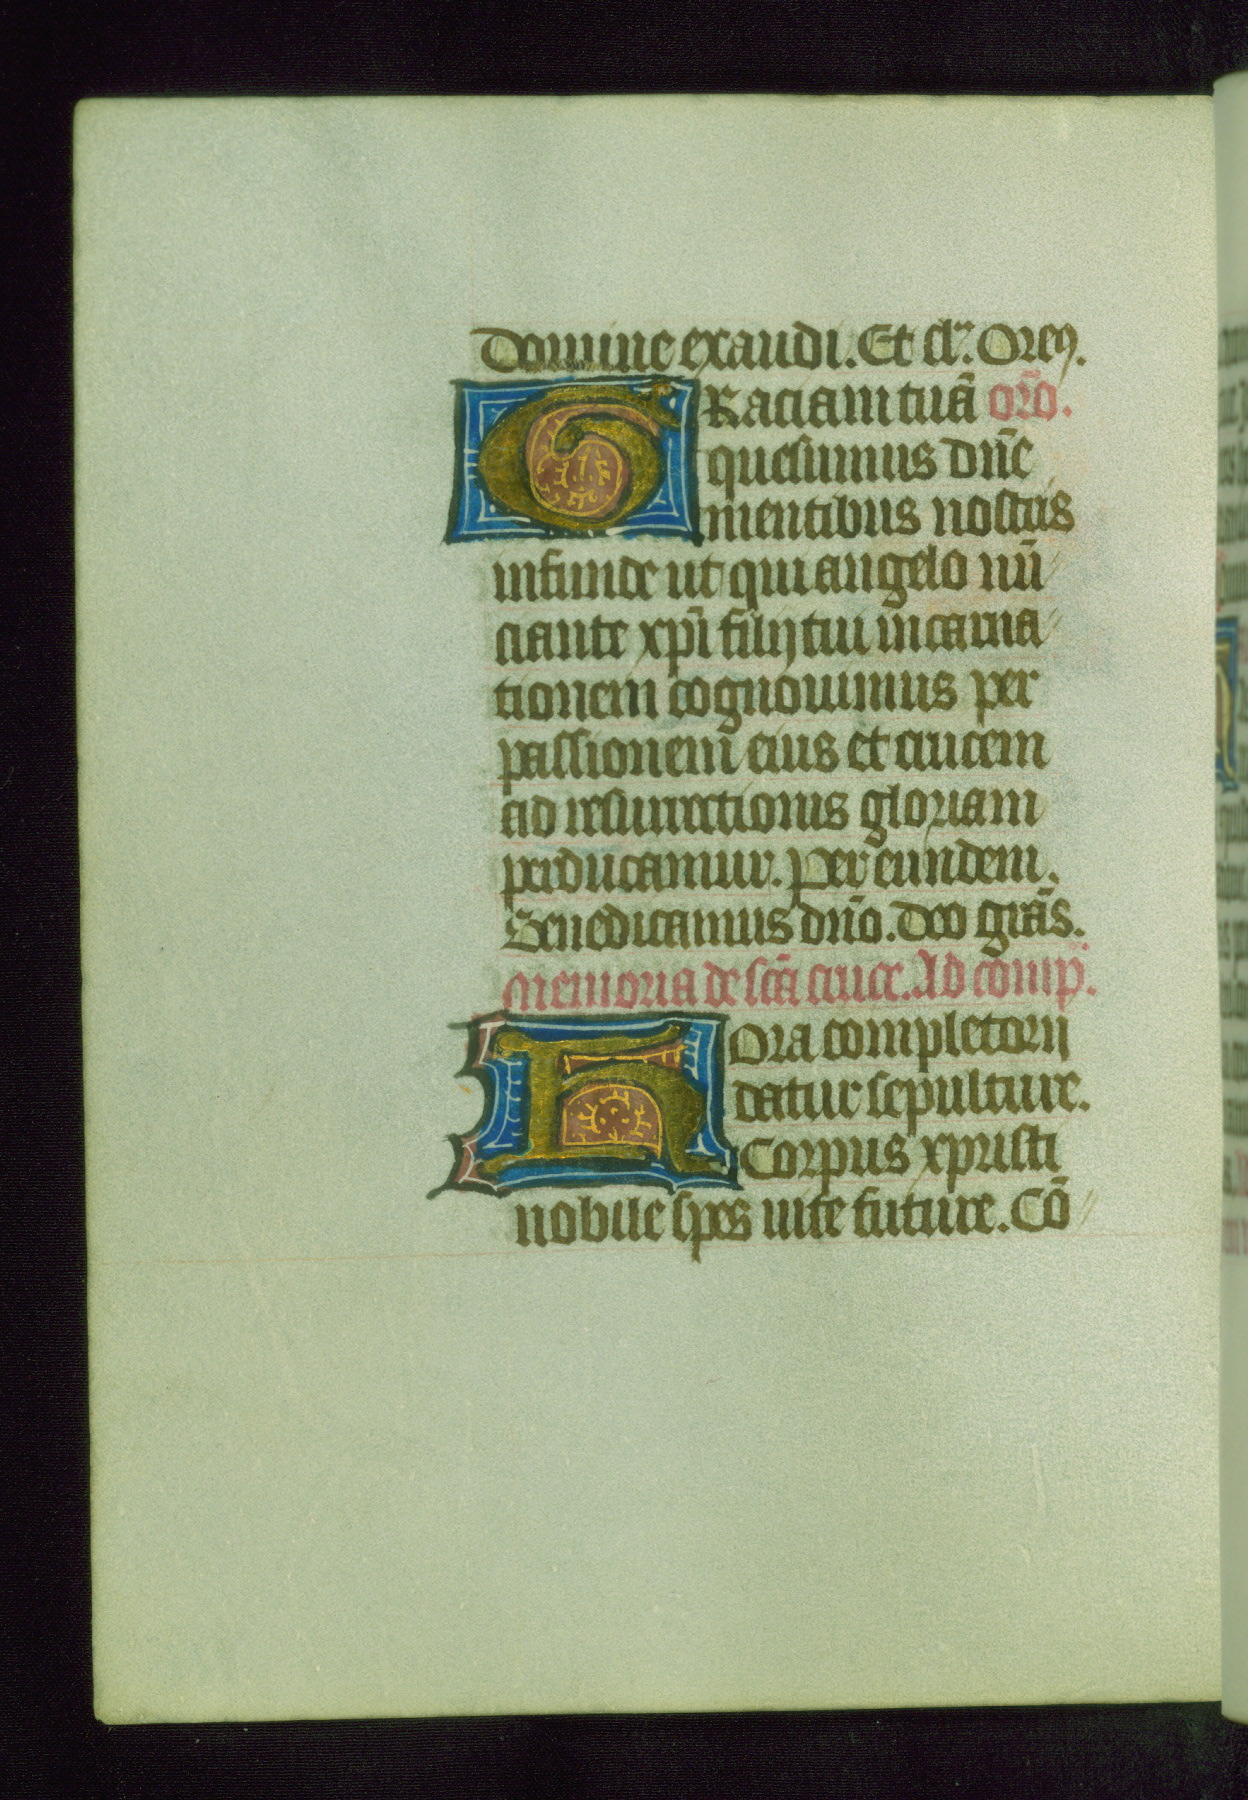 Domine exaudi. Et clr̃. Orem9.
GRaciam tuã orõ.
quesumus dñe
mentibus nostris
infunde ut qui angelo nũ
ciante xpĩ filij tui incarna
tionem cognouimus per
passionem eius et crucem
ad resurrectionis gloriam
perducamur. Per eundem.
Benedicamus dño. Deo grãs.
Memoria de scã cruce. Ad comp̃.
HOra completorij
datur sepulture.
Corpus xpristi
nobile spes uite future. Cõ